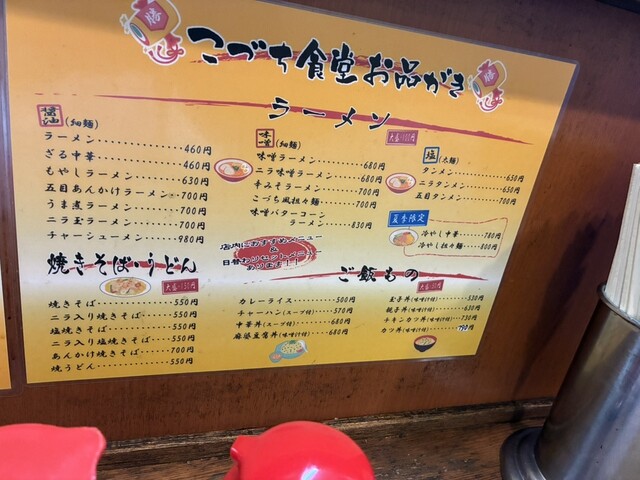 こづち食堂お品がき
ラーメン
醤油 (細麺)
ラーメン 460円
ざる中華 460円
もやしラーメン 630円
五目あんかけラーメン 700円
うま煮ラーメン 700円
ニラ玉ラーメン 700円
チャーシューメン 980円
味噌 (細麺)
味噌ラーメン 680円
ニラ味噌ラーメン 680円
辛みそラーメン 700円
こづち風担々麺 700円
味噌バターコーンラーメン 830円
大盛り100円
塩 (太麺)
タンメン 650円
ニラタンメン 650円
五目タンメン 700円
夏季限定
冷やし中華 780円
冷やし担々麺 800円
店内におすすめメニュー
&
日替わりセットメニュー
あります!!
焼きそば・うどん
大盛り130円
焼きそば 550円
ニラ入り焼きそば 550円
塩焼きそば 550円
ニラ入り塩焼きそば 550円
あんかけ焼きそば 700円
焼うどん 550円
ご飯もの
カレーライス 500円
チャーハン(スープ付) 570円
中華丼(スープ付) 680円
麻婆豆腐丼(味噌汁付) 680円
玉子丼(味噌汁付) 530円
親子丼(味噌汁付) 630円
チキンカツ丼(味噌汁付) 730円
カツ丼(味噌汁付) 790円